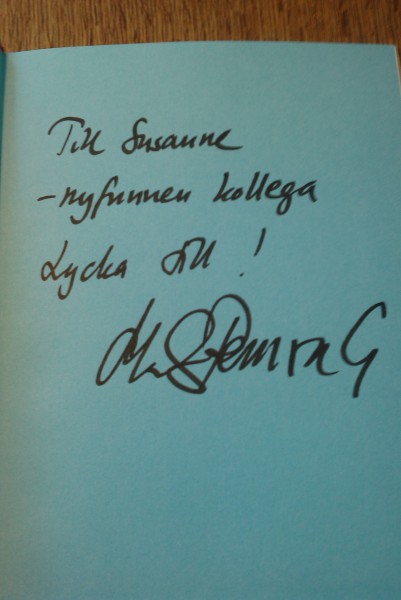 Till Susanne
– nyfunnen kollega
Lycka till!